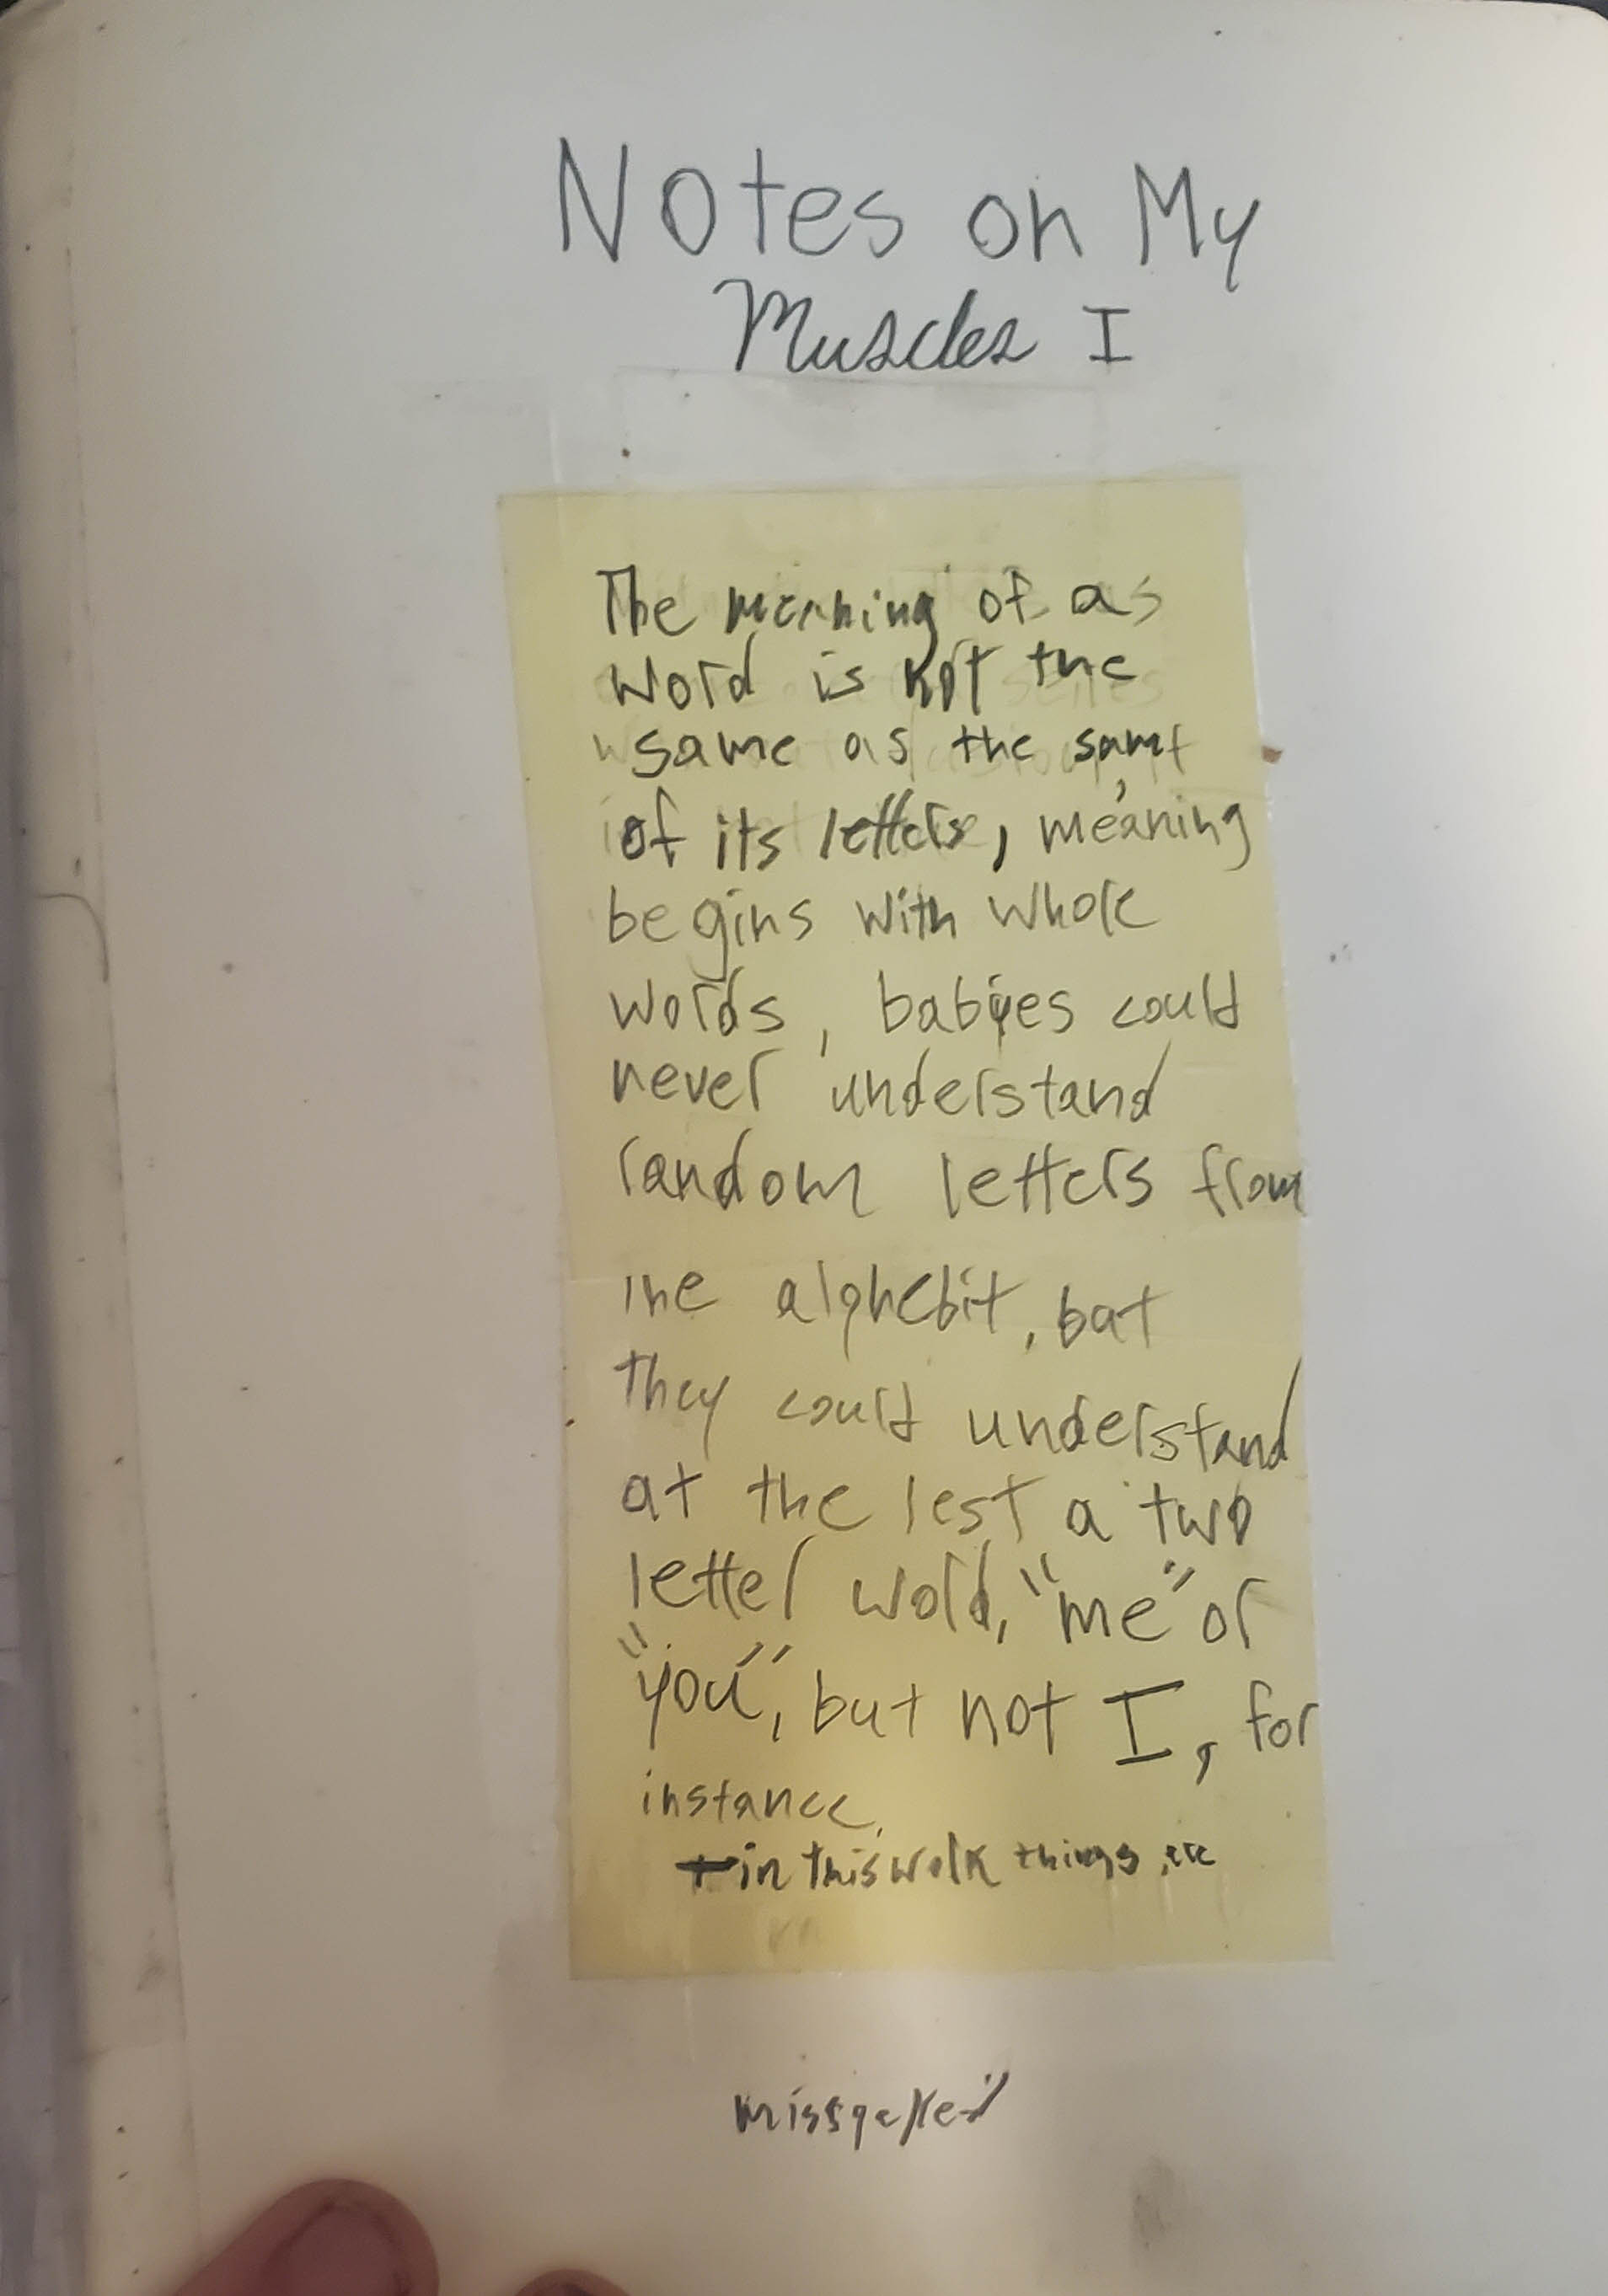 Notes on My
Muscles I
The meaning of as
word is not the
same as the
of its letters, meaning
begins with whole
words, babies could
never understand
random letters from
the alphebit, but
they could understand
at the lest a two
letter word, "me" or
"you", but not I, for
instance,
in this work things are
misspelled